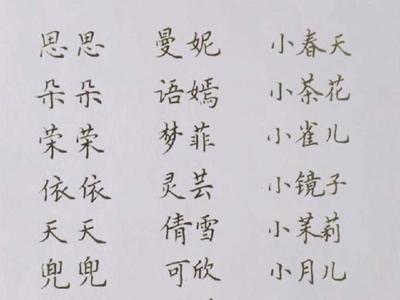 思思 曼妮 小春天
朵朵 语嫣 小茶花
荣荣 梦菲 小雀儿
依依 灵芸 小镜子
天天 倩雪 小茉莉
兜兜 可欣 小月儿